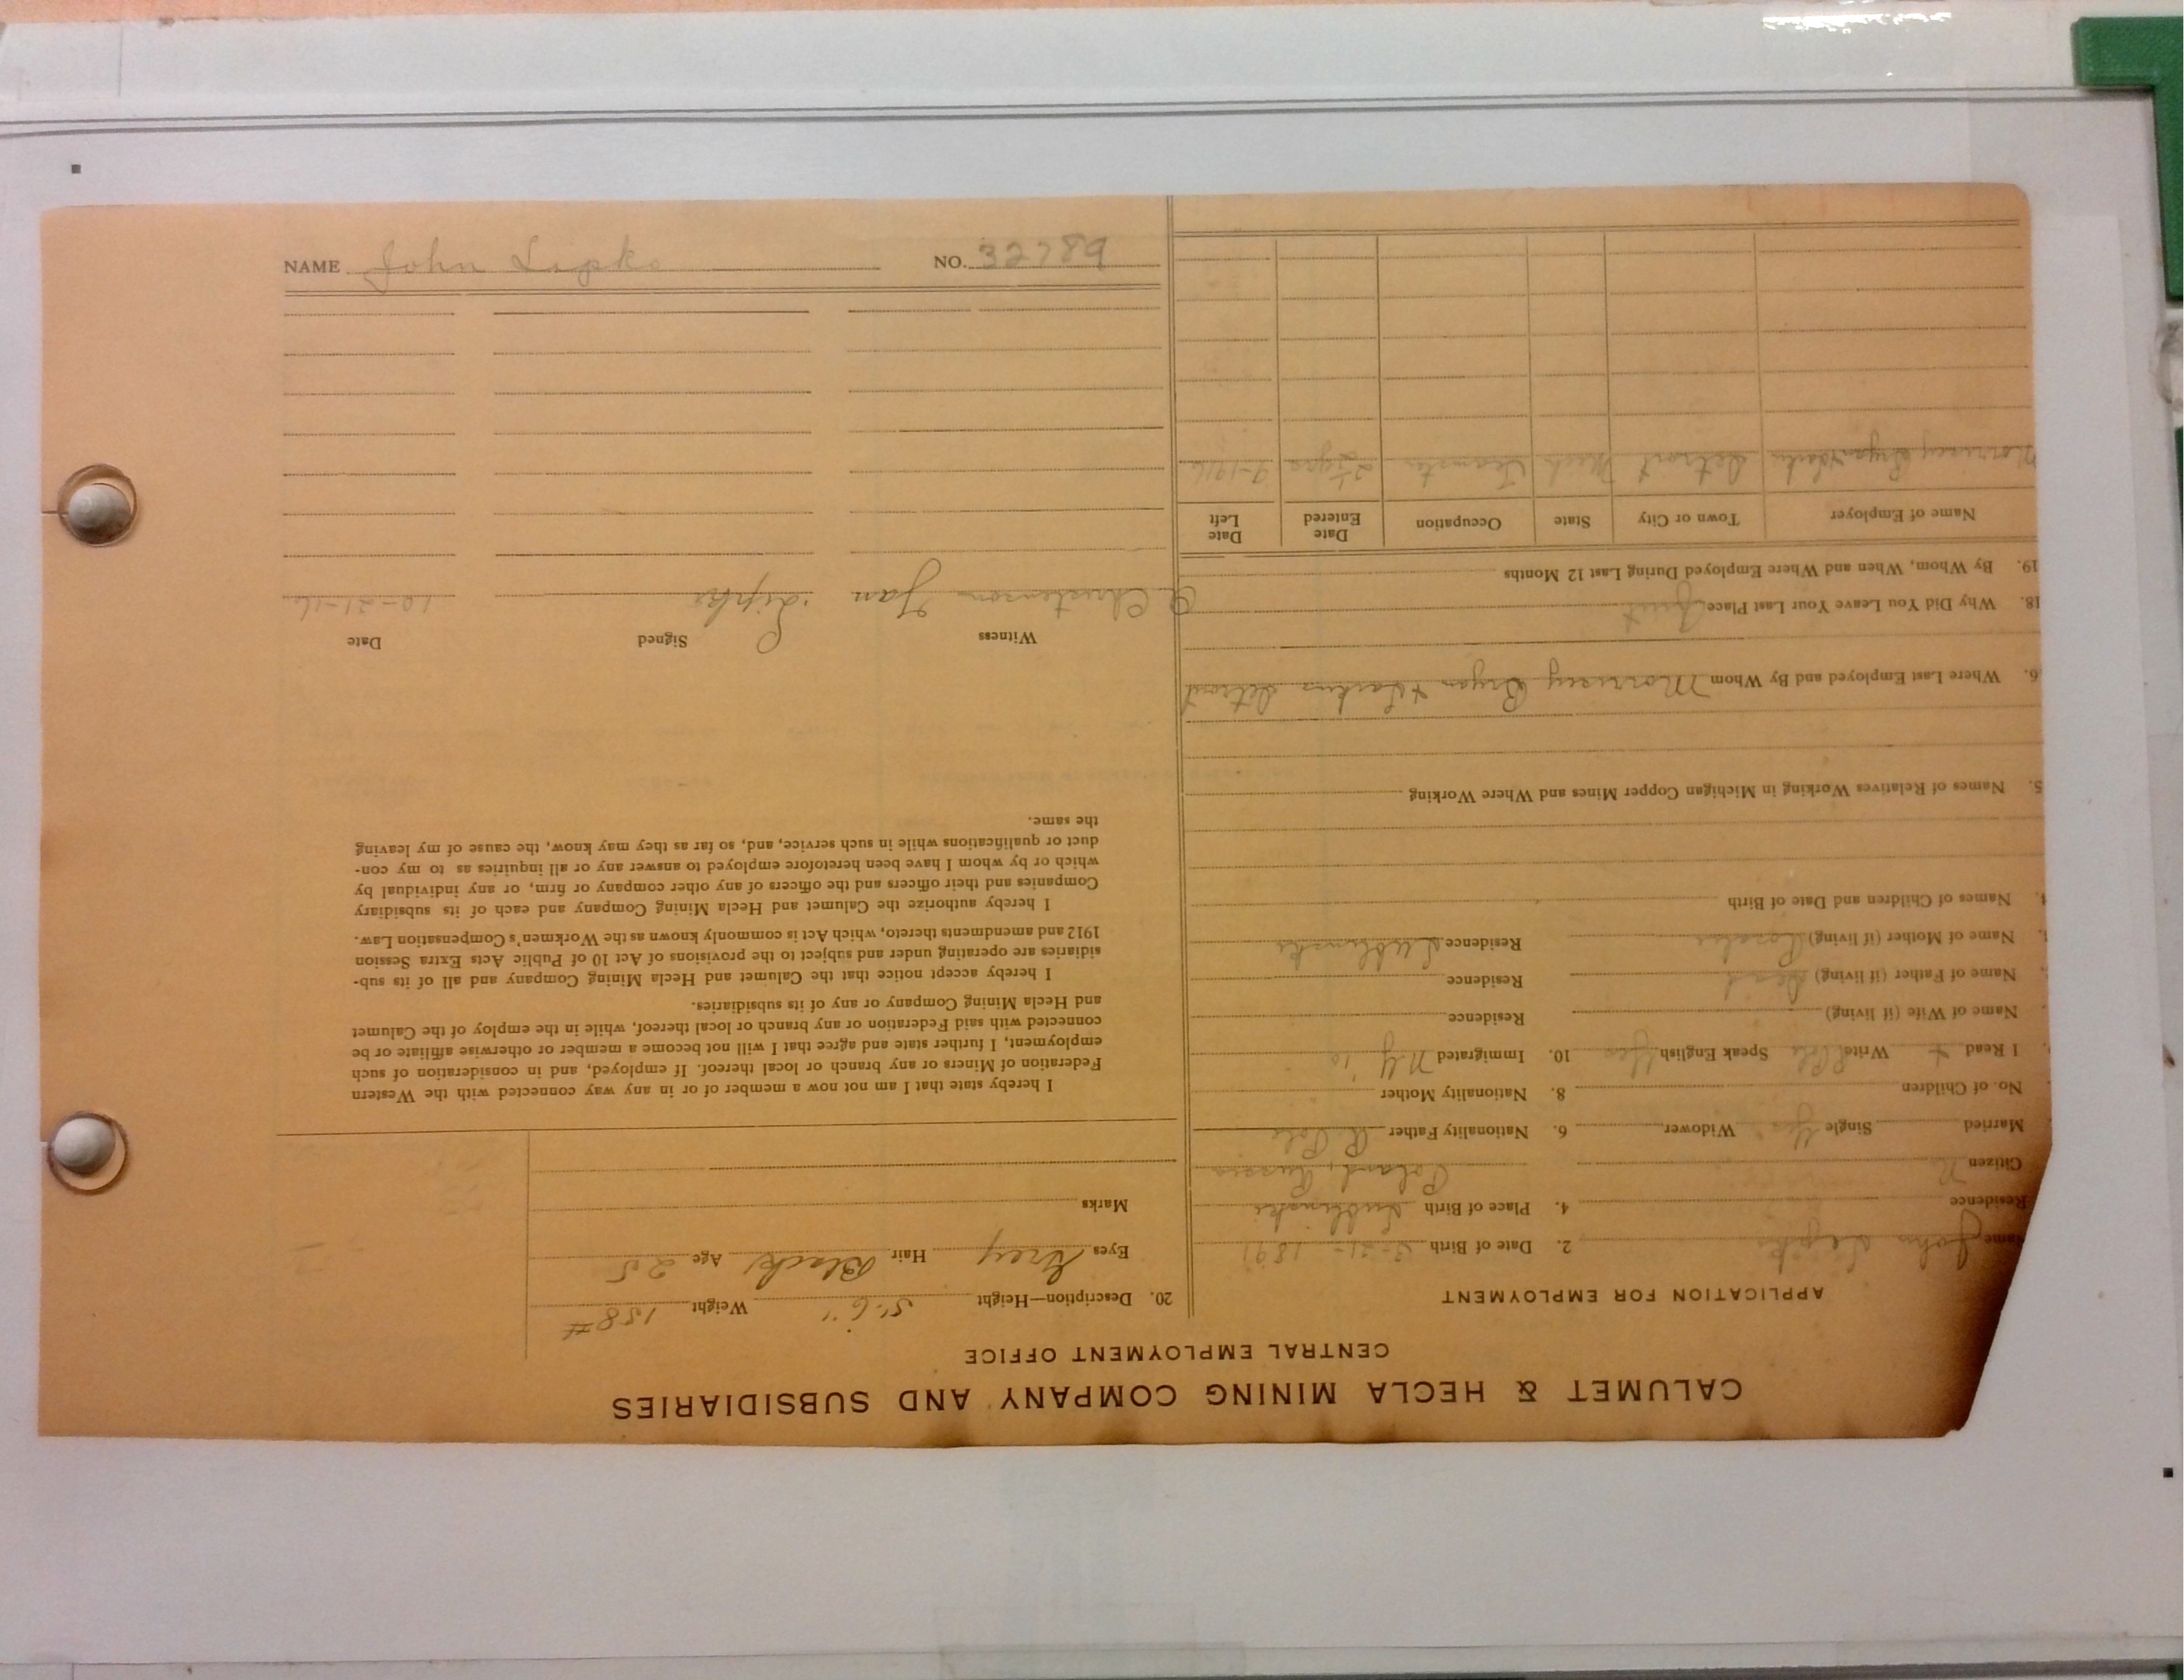 CALUMET & HECLA MINING COMPANY AND SUBSIDIARIES
CENTRAL EMPLOYMENT OFFICE
APPLICATION FOR EMPLOYMENT
Name John Lipko 2. Date of Birth 1891
Residence 4. Place of Birth
Poland, Russia
Citizen
Married Single Yes Widower 6. Nationality Father R. Pole
No. of Children 8. Nationality Mother
I Read + Write Pole Speak English Yes 10. Immigrated N.Y. '10
Name of Wife (if living) Residence
Name of Father (if living) Dead Residence
Name of Mother (if living) Residence
Names of Children and Date of Birth
5. Names of Relatives Working in Michigan Copper Mines and Where Working
6. Where Last Employed and By Whom Bryan + Detroit
18. Why Did You Leave Your Last Place Quit
19. By Whom, When and Where Employed During Last 12 Months
Name of Employer Town or City State Occupation Date Entered Date Left
Bryan Detroit Mich Teamster 9-1916
20. Description—Height 5'-6" Weight 158#
Eyes Grey Hair Black Age 25
Marks
I hereby state that I am not now a member of or in any way connected with the Western
Federation of Miners or any branch or local thereof. If employed, and in consideration of such
employment, I further state and agree that I will not become a member or otherwise affiliate or be
connected with said Federation or any branch or local thereof, while in the employ of the Calumet
and Hecla Mining Company or any of its subsidiaries.
I hereby accept notice that the Calumet and Hecla Mining Company and all of its sub-
sidiaries are operating under and subject to the provisions of Act 10 of Public Acts Extra Session
1912 and amendments thereto, which Act is commonly known as the Workmen's Compensation Law.
I hereby authorize the Calumet and Hecla Mining Company and each of its subsidiary
Companies and their officers and the officers of any other company or firm, or any individual by
which or by whom I have been heretofore employed to answer any or all inquiries as to my con-
duct or qualifications while in such service, and, so far as they may know, the cause of my leaving
the same.
Witness Signed Date
Christenson Jan Lipko 10-21-16
NAME John Lipko NO. 32789